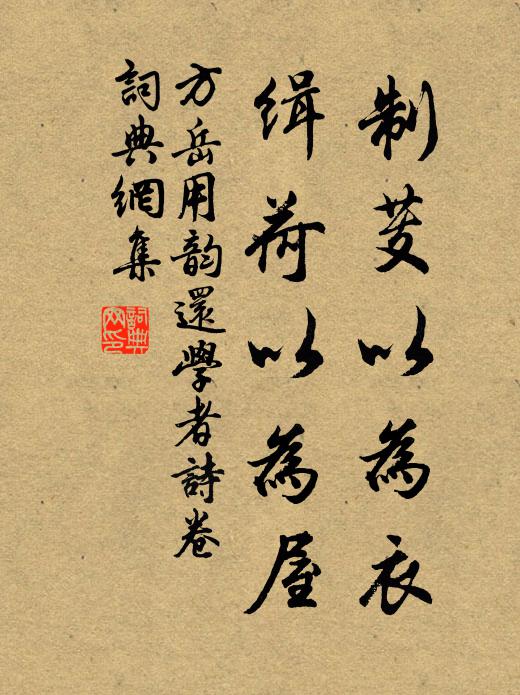 制芰以為衣
緝荷以為屋
方岳用韵還學者詩卷
詞典網集
詞典網印